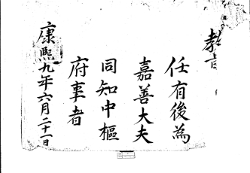 教旨
任有後為
嘉善大夫
同知中樞
府事者
康熙九年六月二十一日